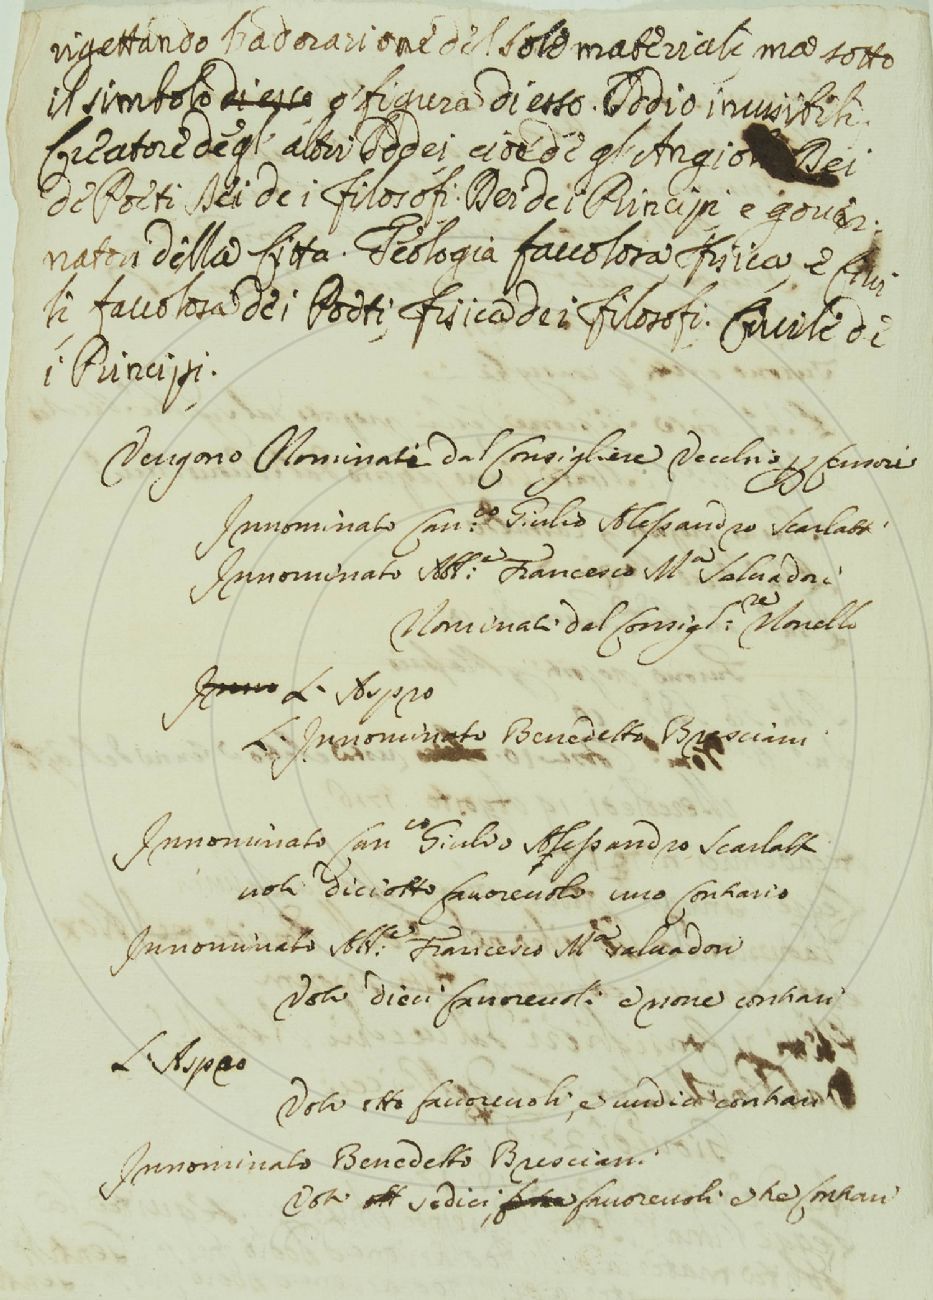 rigettando l'adorazione del sole materiale ma sotto
il simbolo di esso o figura di esso. Iddio invisibile.
Creatore degl'altri Iddei cioè de gl'Angioli Dei
de Poeti Dei dei filosofi. Dei dei Principi e gover:
natori della Citta. Teologia favolosa, fisica, e Civi
le favolosa dei Poeti, fisica dei filosofi. Civile de
i Principi.
Vengono Nominati dal Consigliere Vecchio Censori
Innominato Can:co Giulio Alessandro Scarlatti
Innominato Abb:e Francesco Ma Salvadori
Nominati dal Consigl:re Novello
Inno L'Aspro
L'Innominato Benedetto Bresciani
Innominato Canco Giulio Alessandro Scarlatti
voti diciotto favorevoli uno contrario
Innominato Abb:e Francesco Ma Salvadori
Voti dieci favorevoli e nove contrari
L'Aspro
Voti otto favorevoli, e undici contrari
Innominato Benedetto Bresciani
Voti ott sedici, favorevoli e tre contrari